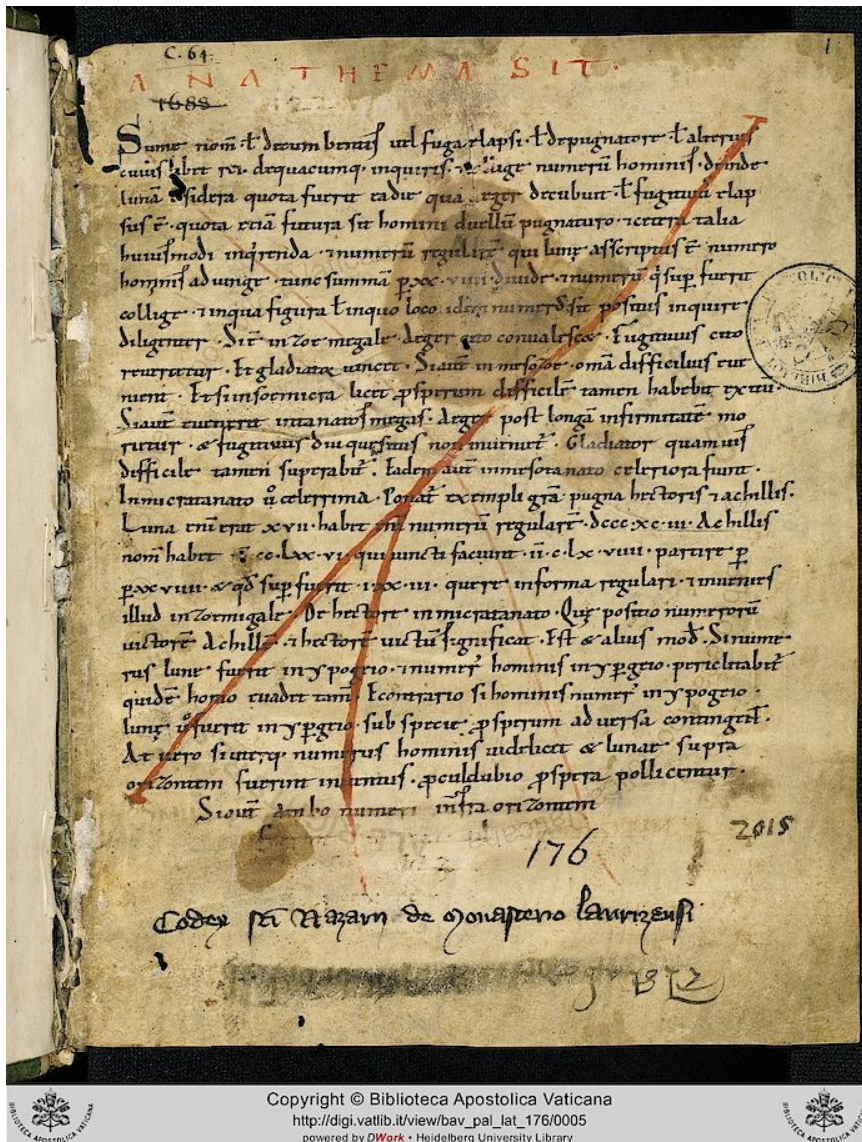 C. 64.
1
ANATHEMA SIT.
1688
Sume nom̄ ł decumbentis̄ uel fuga elapsi · ł depugnatore · ł alterius
cuius libet rei · dequacumq· inquiris · numerū hominis̄ · deinde
lunā sidera quota fuerit ea die qua eger decubuit · ł fugitiuus elap
sus ē · quota etiā futura sit homini duellū pugnaturo · ⁊ cetera talia
huius̄modi inqrenda · ⁊ numerū regularē qui lunę asscriptus ē · numero
hominis̄ adiunge · tunc summā p̱ · xx · viiii · diuide · ⁊ numerū q̊ sup̱ fuerit
collige · ⁊ inqua figura ł inquo loco idem numerꝰ sit positus inquire
diligenter · Si ē in zoe megale · eger cito conualescet · Fugitiuus cito
reuertetur · Et gladiator uincet · Si aut̄ in mesozoe · om̄a difficilius eue
nient · Et si insoemicra licet ꝓsperum difficilē tamen habebit exitū ·
Si aut̄ euenerit intanatos̄ megas · Aeger post longā infirmitatē mo
rietur · & fugitiuus diu quesitus non inuenit̄ · Gladiator quamuis̄
difficile tamen superabit̄ · Eadem aut̄ inmesotanato celeriora fiunt ·
Inmicratanato ů celerrima · Ponat̄ exempli gr̄a pugna hectoris ⁊ achillis ·
Luna eni erat xvii · habet numerū regularē · dccc · xc · iii · Achillis
nom̄ habet cc · lxx · vi · qui iuncti faciunt · c · lx · viiii · partire p̱
p̱ xx viiii · & qd̄ sup̱ fuerit · quere informa regulari · ⁊ inuenies
illud in zoemigale · De hectore inmicratanato · Quę positio numerorū
uictorē Achillē · ⁊ hectorē uictū significat · Est & alius mod̄ · Si nume
rus lune fuerit in ypogeio · ⁊ numer̄ hominis in yp̱geio · periclitabit̄
quidē homo euadet tam̄ · Econtrario si hominis numer̄ in ypogeio ·
lunę ů fuerit in yp̱geio · sub specie ꝓsperum aduersa contingēt ·
At uero si uterq· numerus hominis uidelicet & lunae supra
orizontem fuerint inuentus · ꝓculdubio ꝓspera pollicentur ·
Si aut̄ ambo numeri infra orizontem
2015
176
Codex sc̄i Nazarii de Monasterio laurizensi
Copyright © Biblioteca Apostolica Vaticana
http://digi.vatlib.it/view/bav_pal_lat_176/0005
powered by DWork • Heidelberg University Library